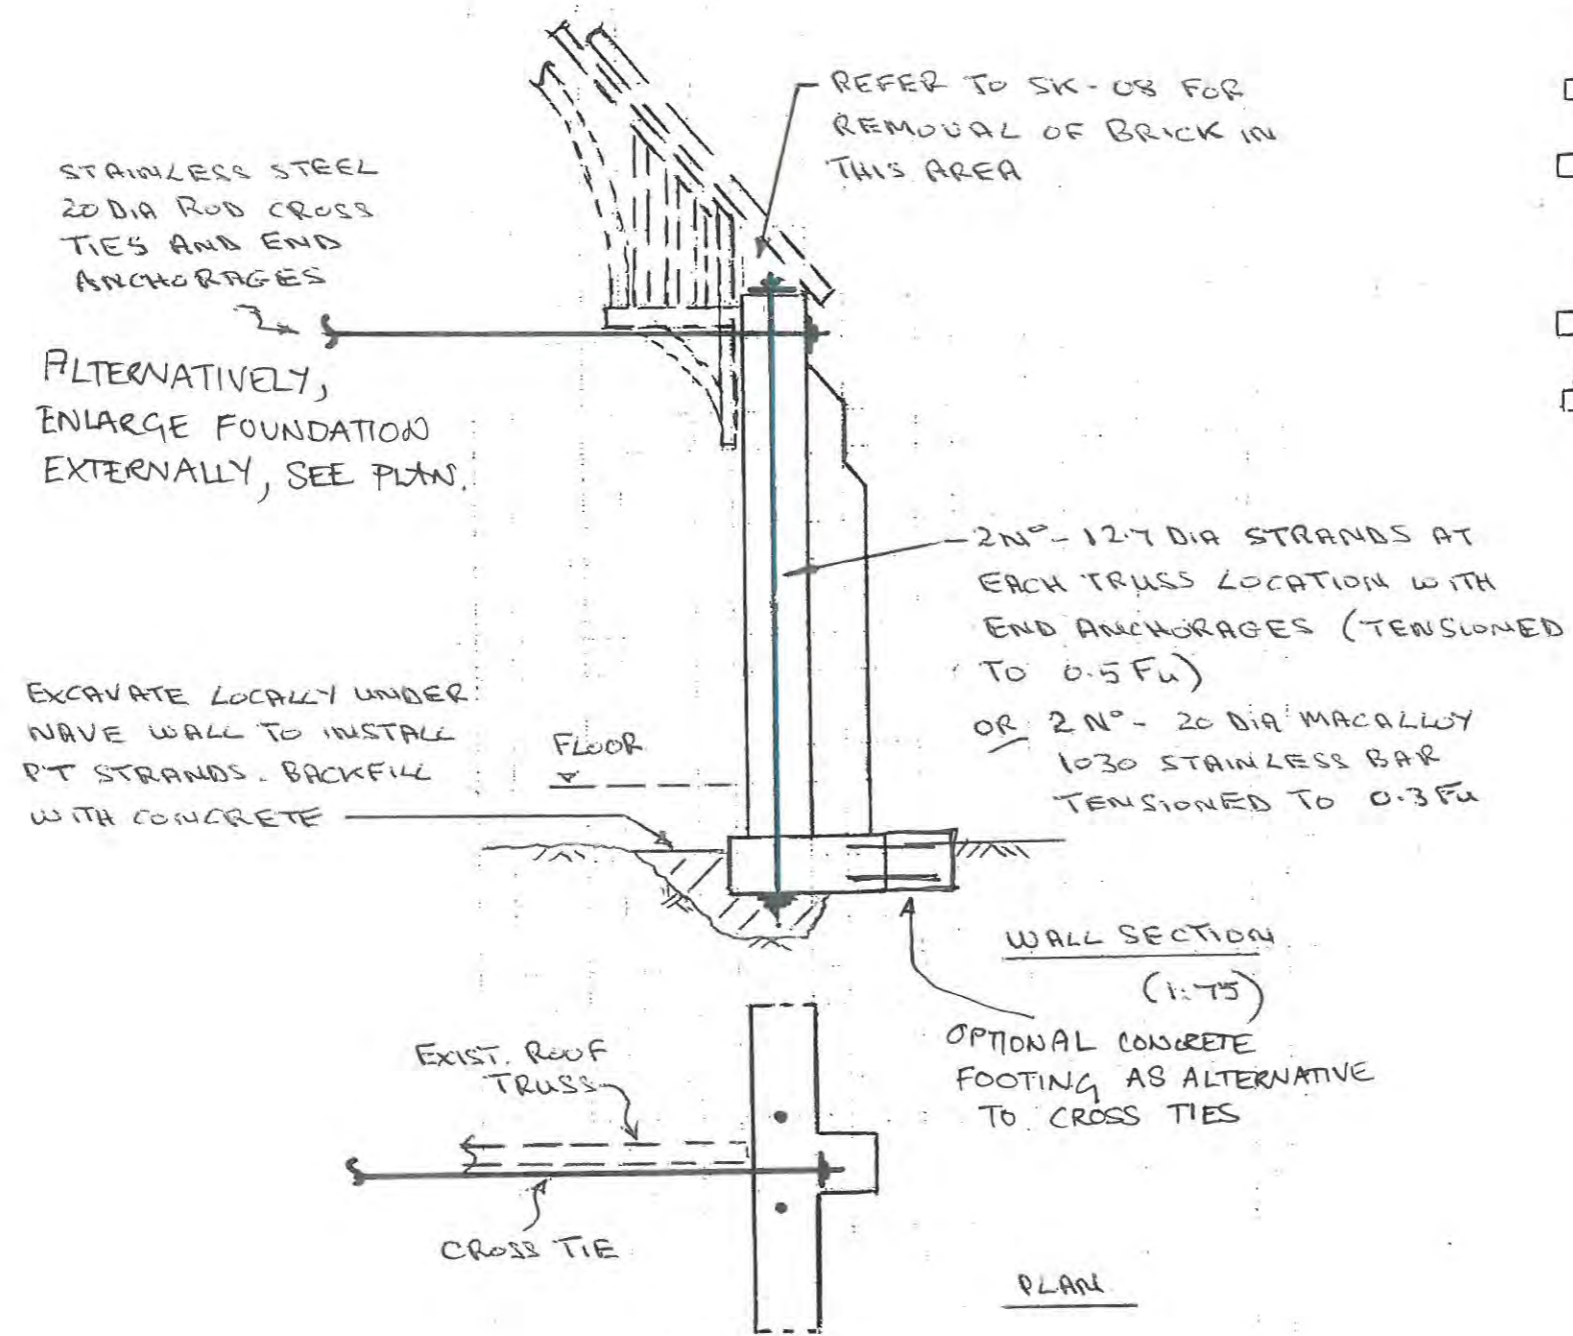 REFER TO SK-08 FOR
REMOVAL OF BRICK IN
THIS AREA
STAINLESS STEEL
20 DIA ROD CROSS
TIES AND END
ANCHORAGES
ALTERNATIVELY,
ENLARGE FOUNDATION
EXTERNALLY, SEE PLAN.
2 Nº - 12.7 DIA STRANDS AT
EACH TRUSS LOCATION WITH
END ANCHORAGES (TENSIONED
TO 0.5 Fu)
OR 2 Nº - 20 DIA MACALLOY
1030 STAINLESS BAR
TENSIONED TO 0.3 Fu
EXCAVATE LOCALLY UNDER
NAVE WALL TO INSTALL
PT STRANDS. BACKFILL
WITH CONCRETE
FLOOR
WALL SECTION
(1:75)
OPTIONAL CONCRETE
FOOTING AS ALTERNATIVE
TO CROSS TIES
EXIST. ROOF
TRUSS
CROSS TIE
PLAN